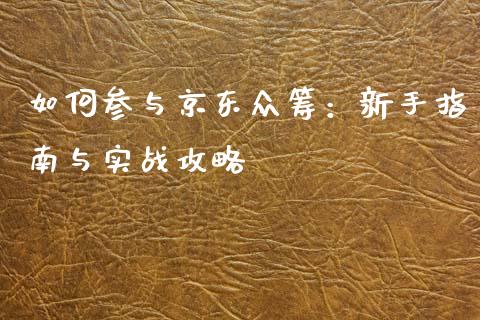 如何参与京东众筹：新手指
南与实战攻略